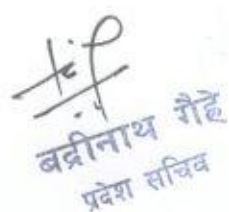 बद्रीनाथ गैहे
प्रदेश सचिव